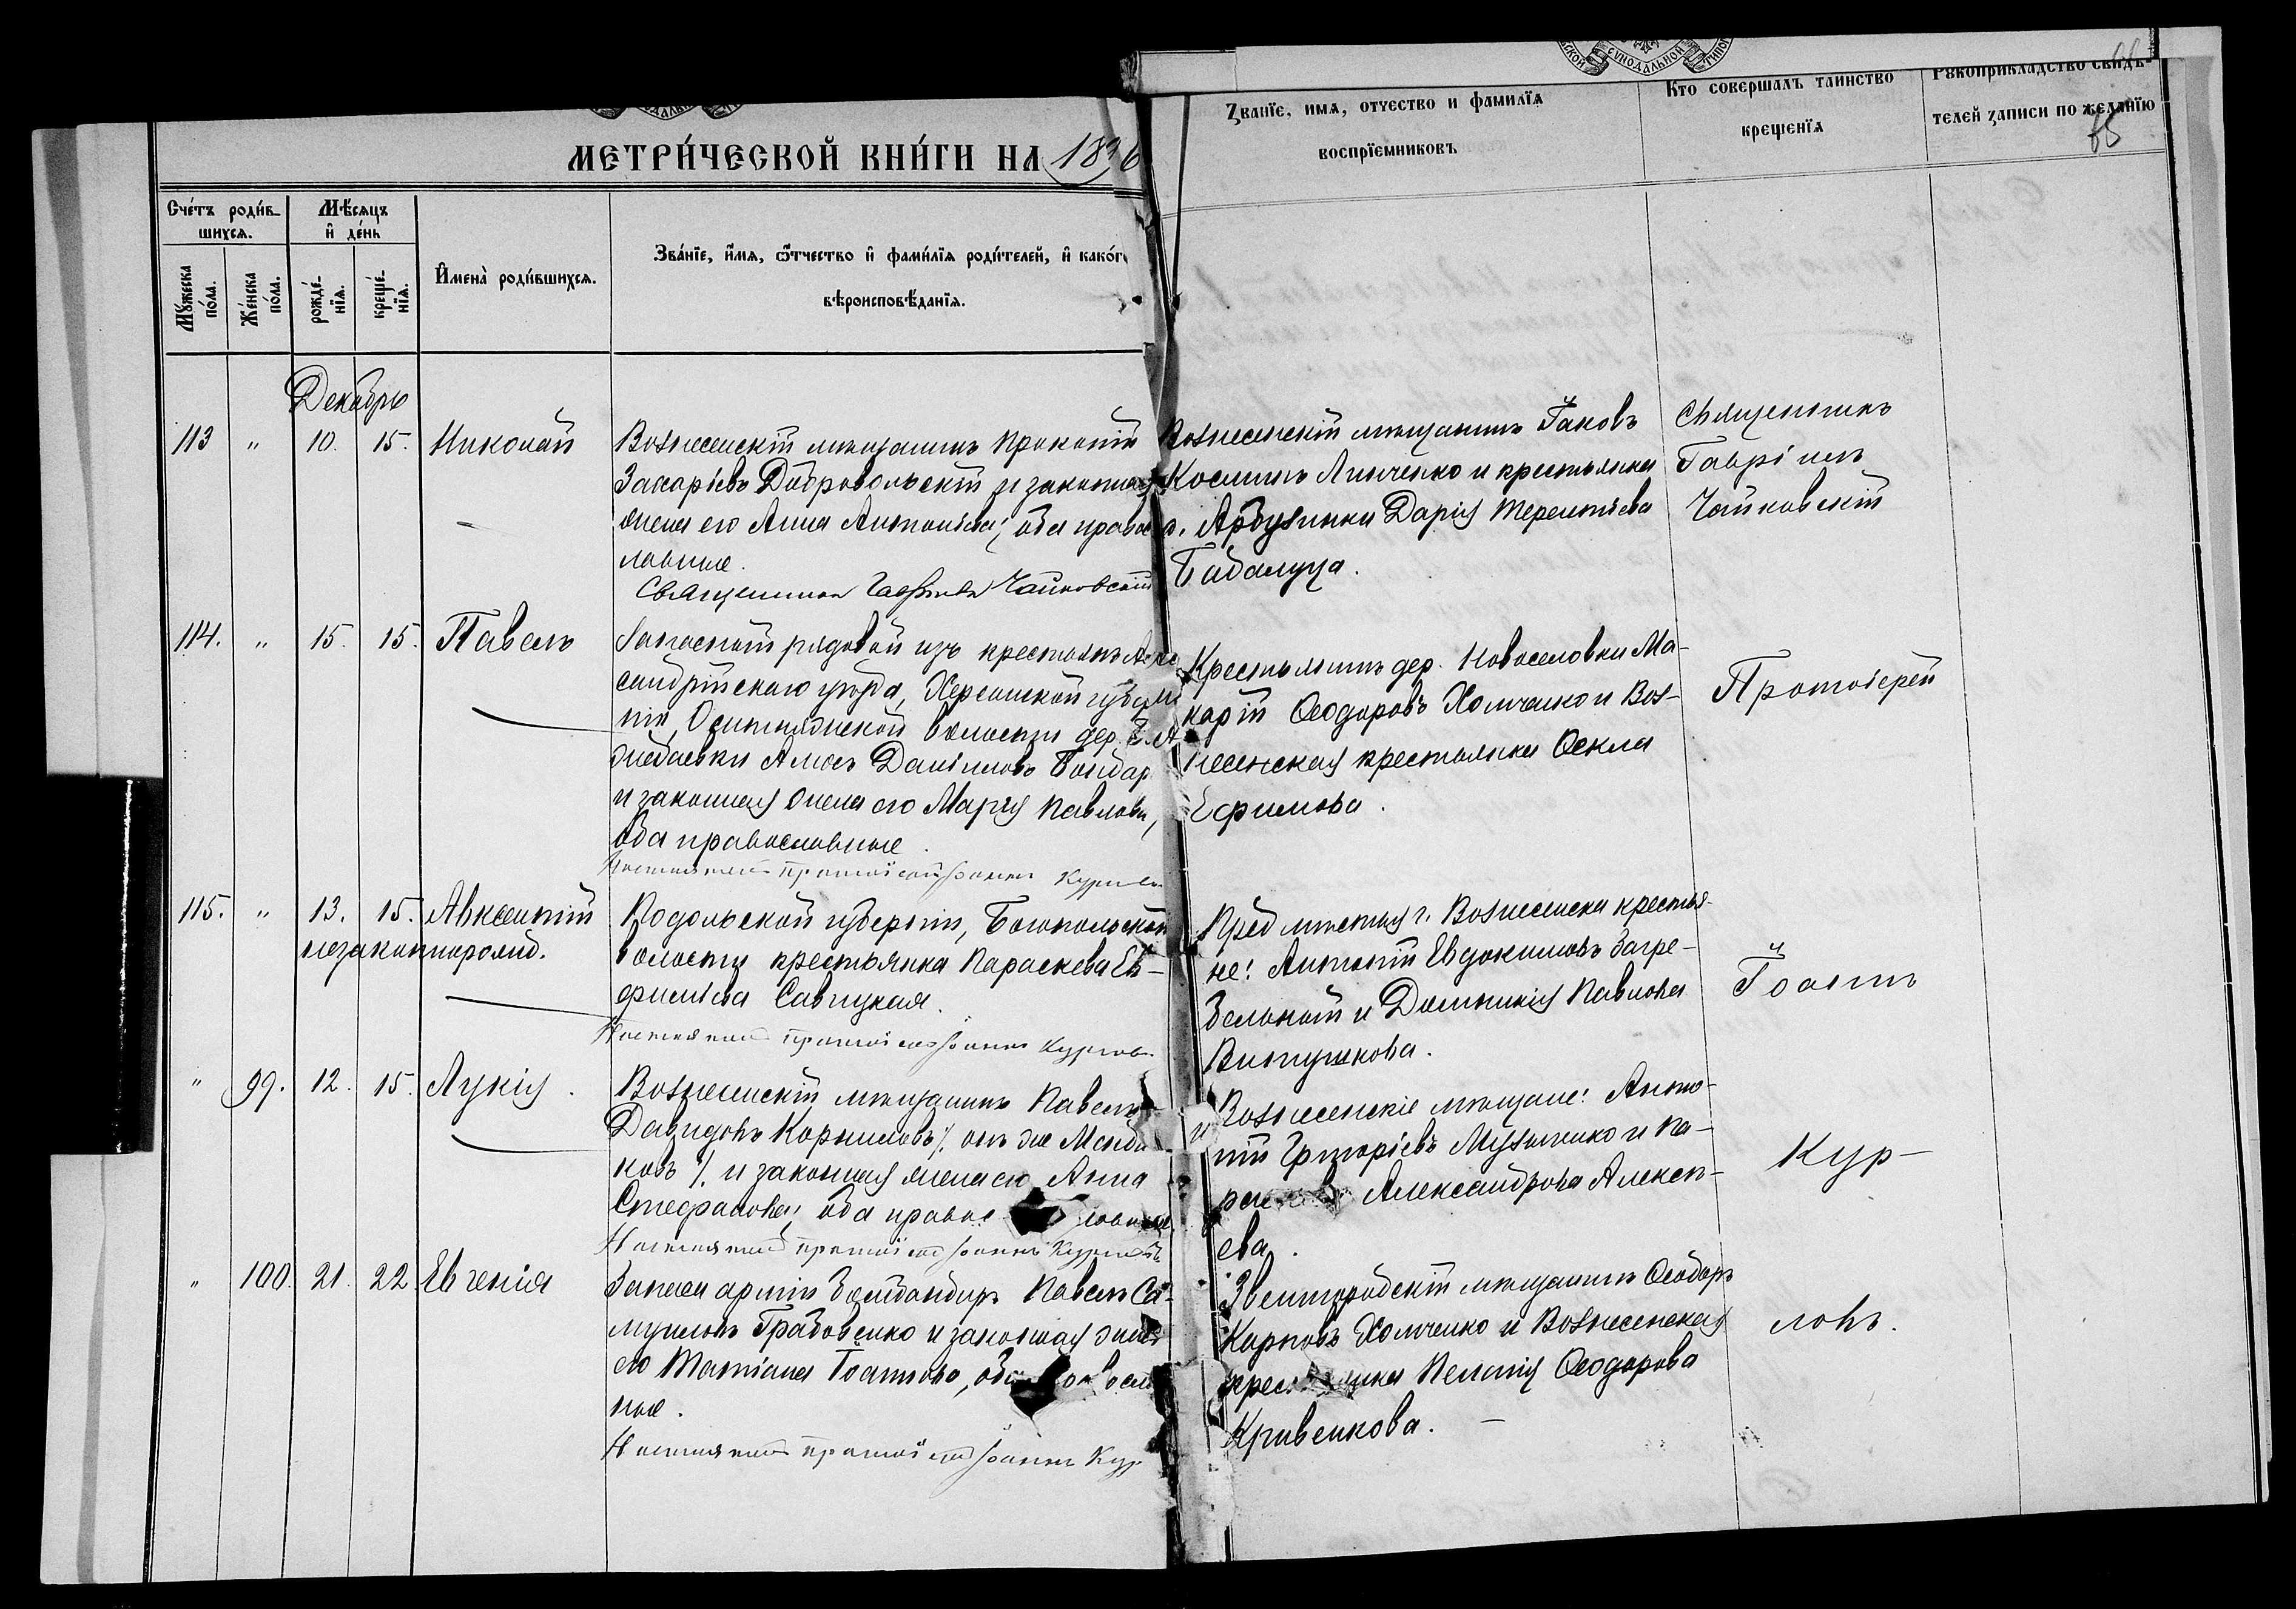 МЕТРИЧЕСКОЙ КНИГИ НА 1896
Счетъ родив-
шихся.
Мѣсяцъ
и день
Мужеска
пола.
Женска
пола.
рожде-
нія.
креще-
нія.
Имена родившихся.
Званіе, имя, отчество и фамилія родителей, и каког
вѣроисповѣданія.
Званіе, имя, отчество и фамилія
воспріемниковъ
Кто совершалъ таинство
крещенія
Рукоприкладство свидѣ-
телей записи по желанію
Декабрь
113 " 10. 15. Николай
Вознесенскій мѣщанинъ Прокопій
Захаріевъ Добровольскій и законная
жена его Анна Антоніева, оба право
славные.
Священникъ Гавріилъ Чайковскій
Вознесенскій мѣщанинъ Іаковъ
Косминъ Линченко и крестьянка
с. Арбузинки Дарія Терентіева
Бабалуца.
Священникъ
Гавріилъ
Чайковскій
114. " 15. 15. Павелъ
Запасный рядовой изъ крестьянъ Алек
сандрійскаго уѣзда, Херсонской губер
ніи, Оситняжской волости дер.
Амосъ Даніиловъ Бондар
и законная жена его Марія Павлова,
оба православные.
Настоятель протоіерей Іоаннъ Курловъ
Крестьянинъ дер. Новоселовки Ма-
карій Ѳеодоровъ Хомченко и Воз-
несенская крестьянка Ѳекла
Ефимова.
Протоіерей
115. " 13. 15. Авксентій
незаконнорожд.
Подольской губерніи, Богопольской
волости крестьянка Параскева Ев-
фиміева Савицкая.
Настоятель протоіерей Іоаннъ Курловъ
Предмѣстья г. Вознесенска крестья-
не: Антоній Евдокимовъ Загре-
бельный и Домникія Павлова
Витушкова.
Іоаннъ
" 99. 12. 15. Лукія.
Вознесенскій мѣщанинъ Павелъ
Давидовъ Корниловъ /. онъ же
ковъ /. и законная жена его Анна
Стефанова, оба правос лавные
Настоятель протоіерей Іоаннъ Курловъ
Вознесенскіе мѣщане: Анто-
ній Григорьевъ Музыченко и Па-
раскева Александрова Алексѣ-
ева.
Кур-
" 100. 21. 22. Евгенія
Запаса арміи бомбандиръ Павелъ Са-
муиловъ Грабовенко и законная жена
его Татіана Іоаннова, оба православ
ные.
Настоятель протоіерей Іоаннъ Кур
Звенигородскій мѣщанинъ Ѳеодоръ
Карповъ Хомченко и Вознесенская
крестьянка Пелагія Ѳеодорова
Кривенкова. —
ловъ.